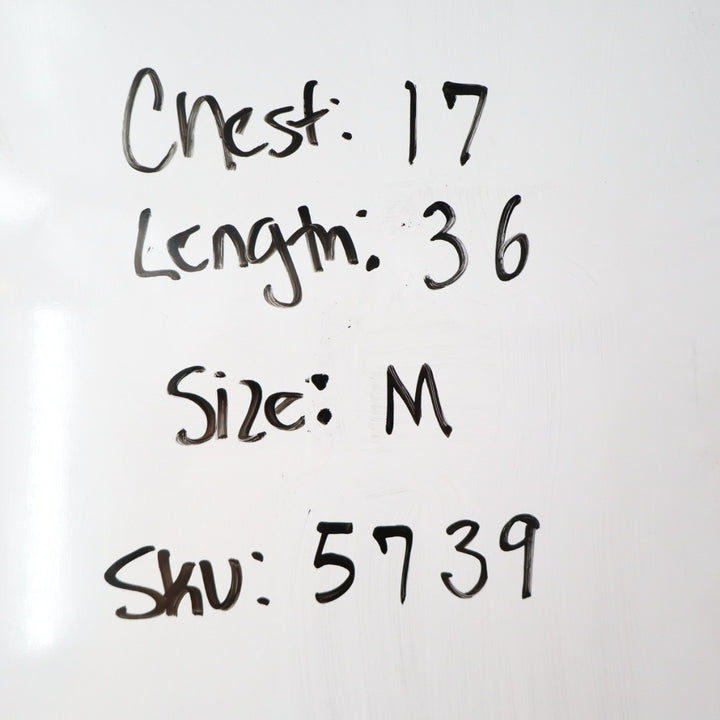 Chest: 17
Length: 36
Size: M
Sku: 5739